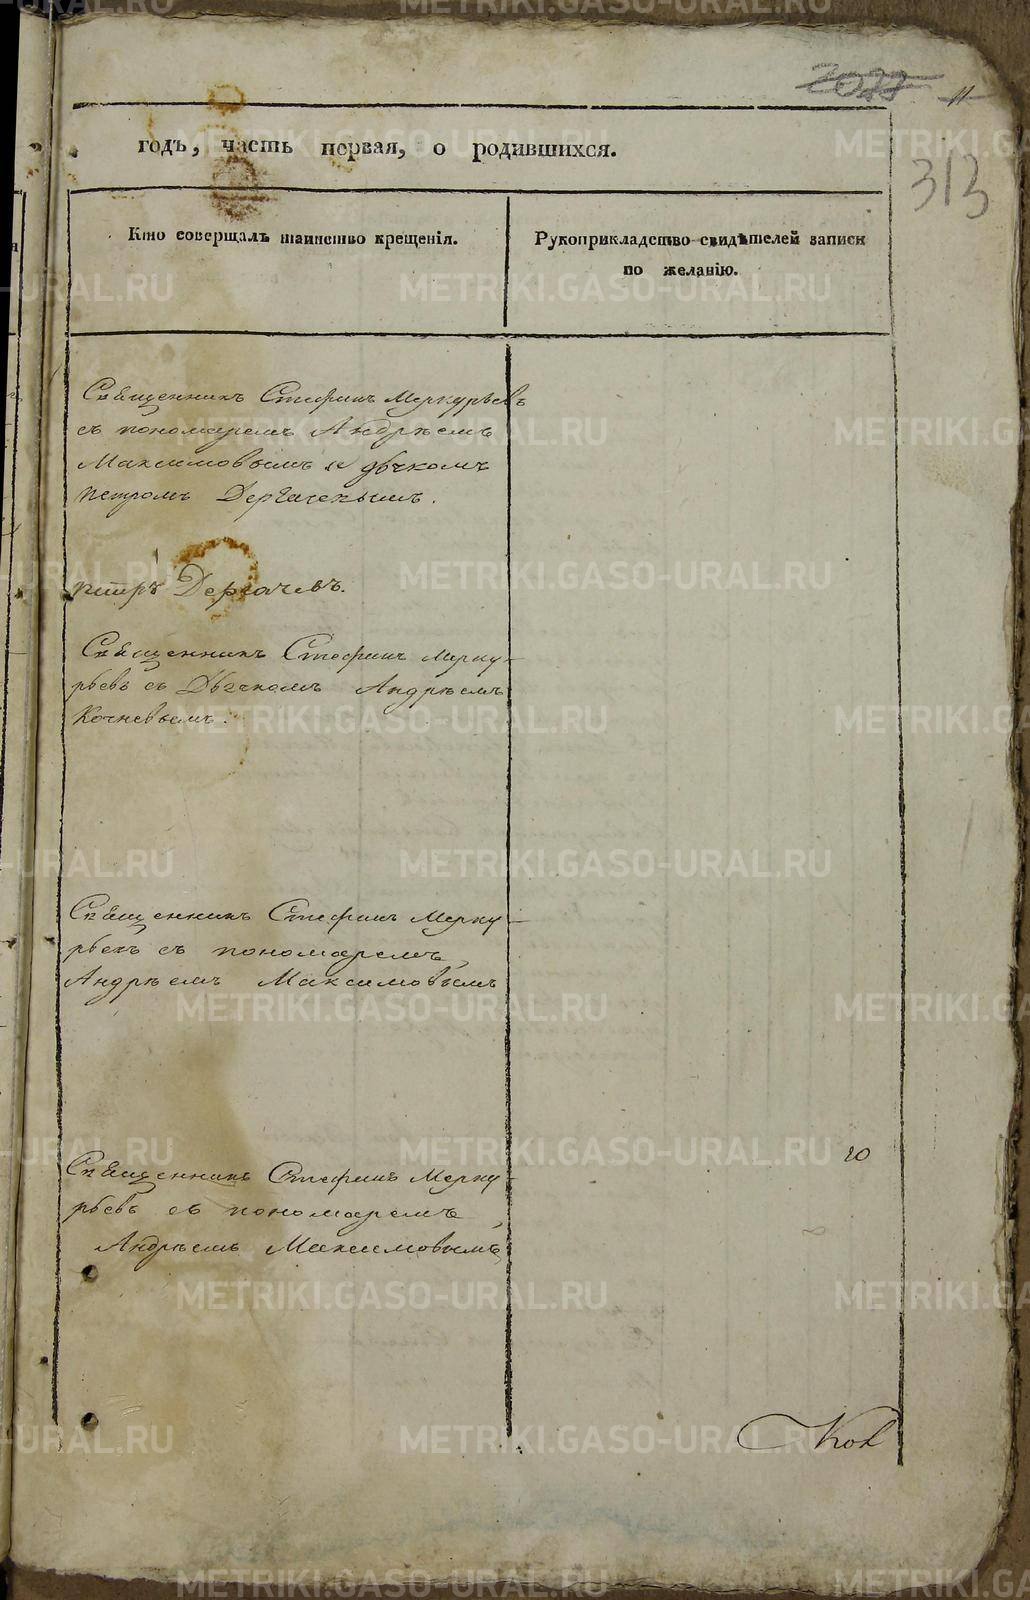 2088 11
313
годъ, часть первая, о родившихся.
Кто совершалъ таинство крещенія.
Рукоприкладство свидѣтелей записи
по желанію.
Священникъ Стефанъ Меркурьевъ
съ пономаремъ Андрѣемъ
Максимовымъ и дьчкомъ
Петромъ Дергачевымъ.
петръ Дергачевъ.
Священникъ Стефанъ Мерку-
рьевъ съ Дьячкомъ Андрѣемъ
Кочневымъ.
Священникъ Стефанъ Мерку-
рьевъ съ пономаремъ
Андрѣемъ Максимовымъ
20
Священникъ Стефанъ Мерку-
рьевъ съ пономаремъ
Андрѣемъ Максимовымъ
Ков
METRIKI.GASO-URAL.RU